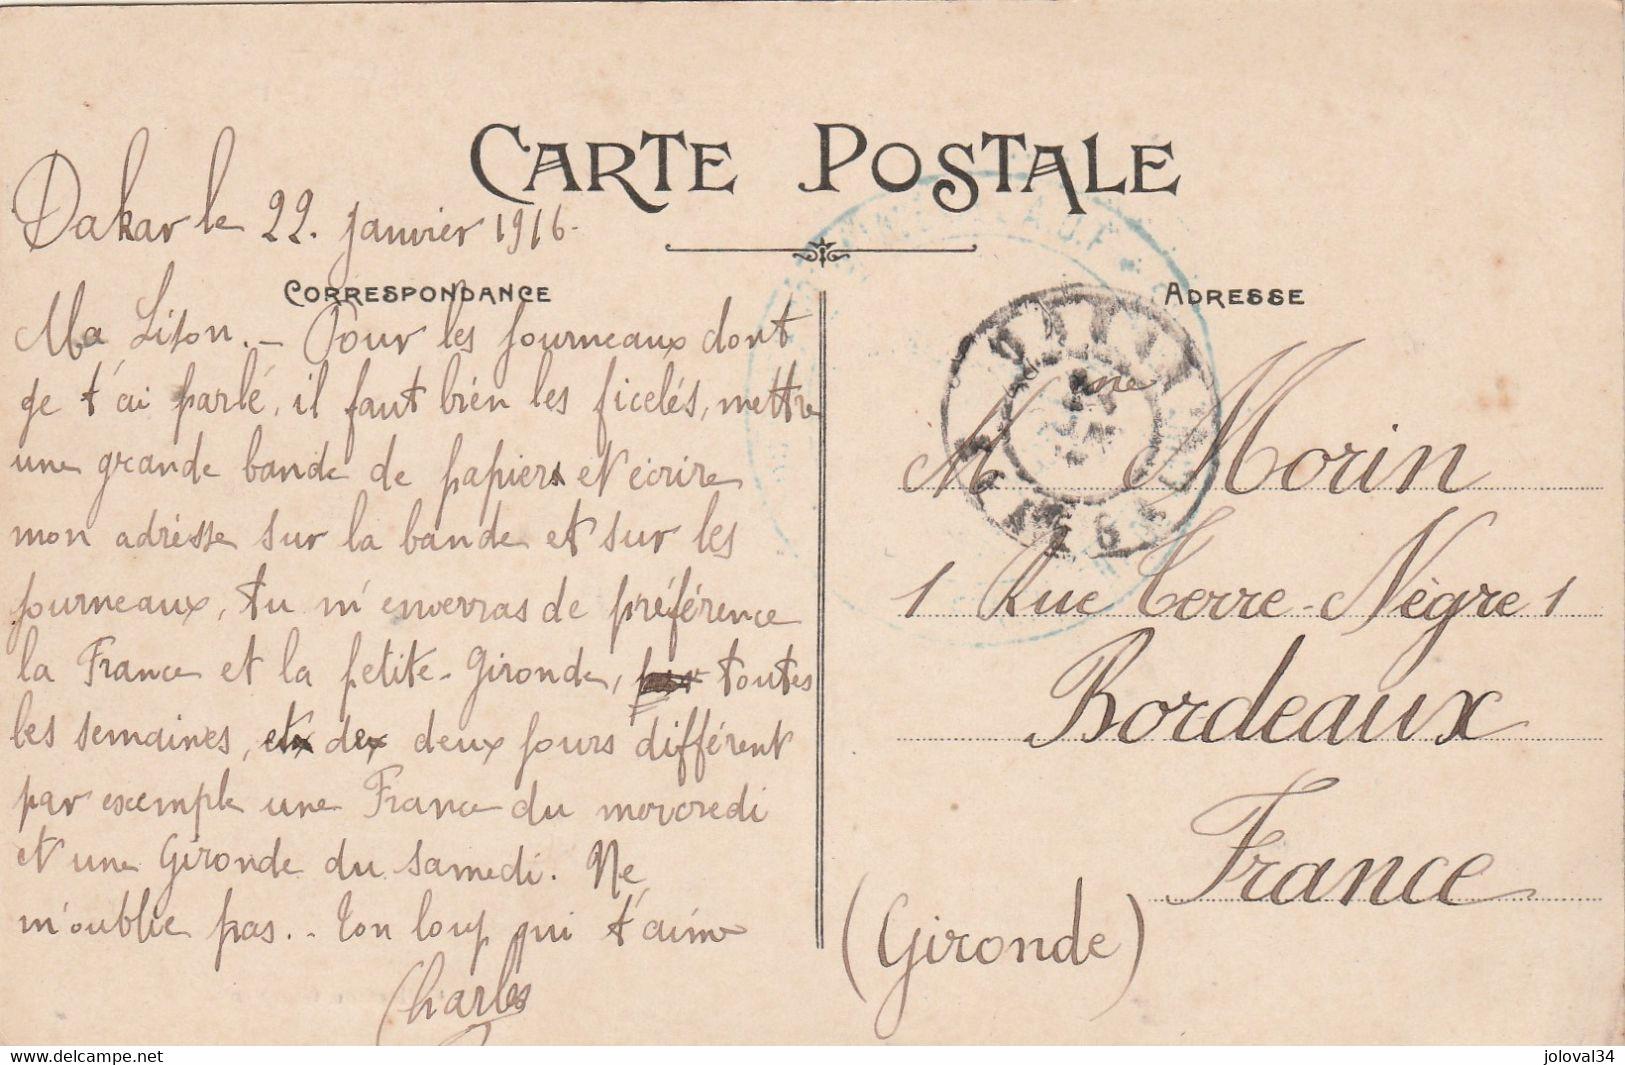 CARTE POSTALE
Dakar le 22. janvier 1916.
CORRESPONDANCE
Ma Lison. - Pour les journeaux dont
je t'ai parlé, il faut bien les ficelés, mettre
une grande bande de papier et écrire
mon adresse sur la bande et sur les
journeaux, tu m'enverras de préférence
la France et la petite-Gironde, toutes
les semaines, deux jours différent
par exemple une France du mercredi
et une Gironde du samedi. Ne
m'oublie pas. - Ton loup qui t'aime
Charles
ADRESSE
Mme Morin
1 Rue Terre-Nègre 1
Bordeaux
France
(Gironde)
www.delcampe.net
joloval34